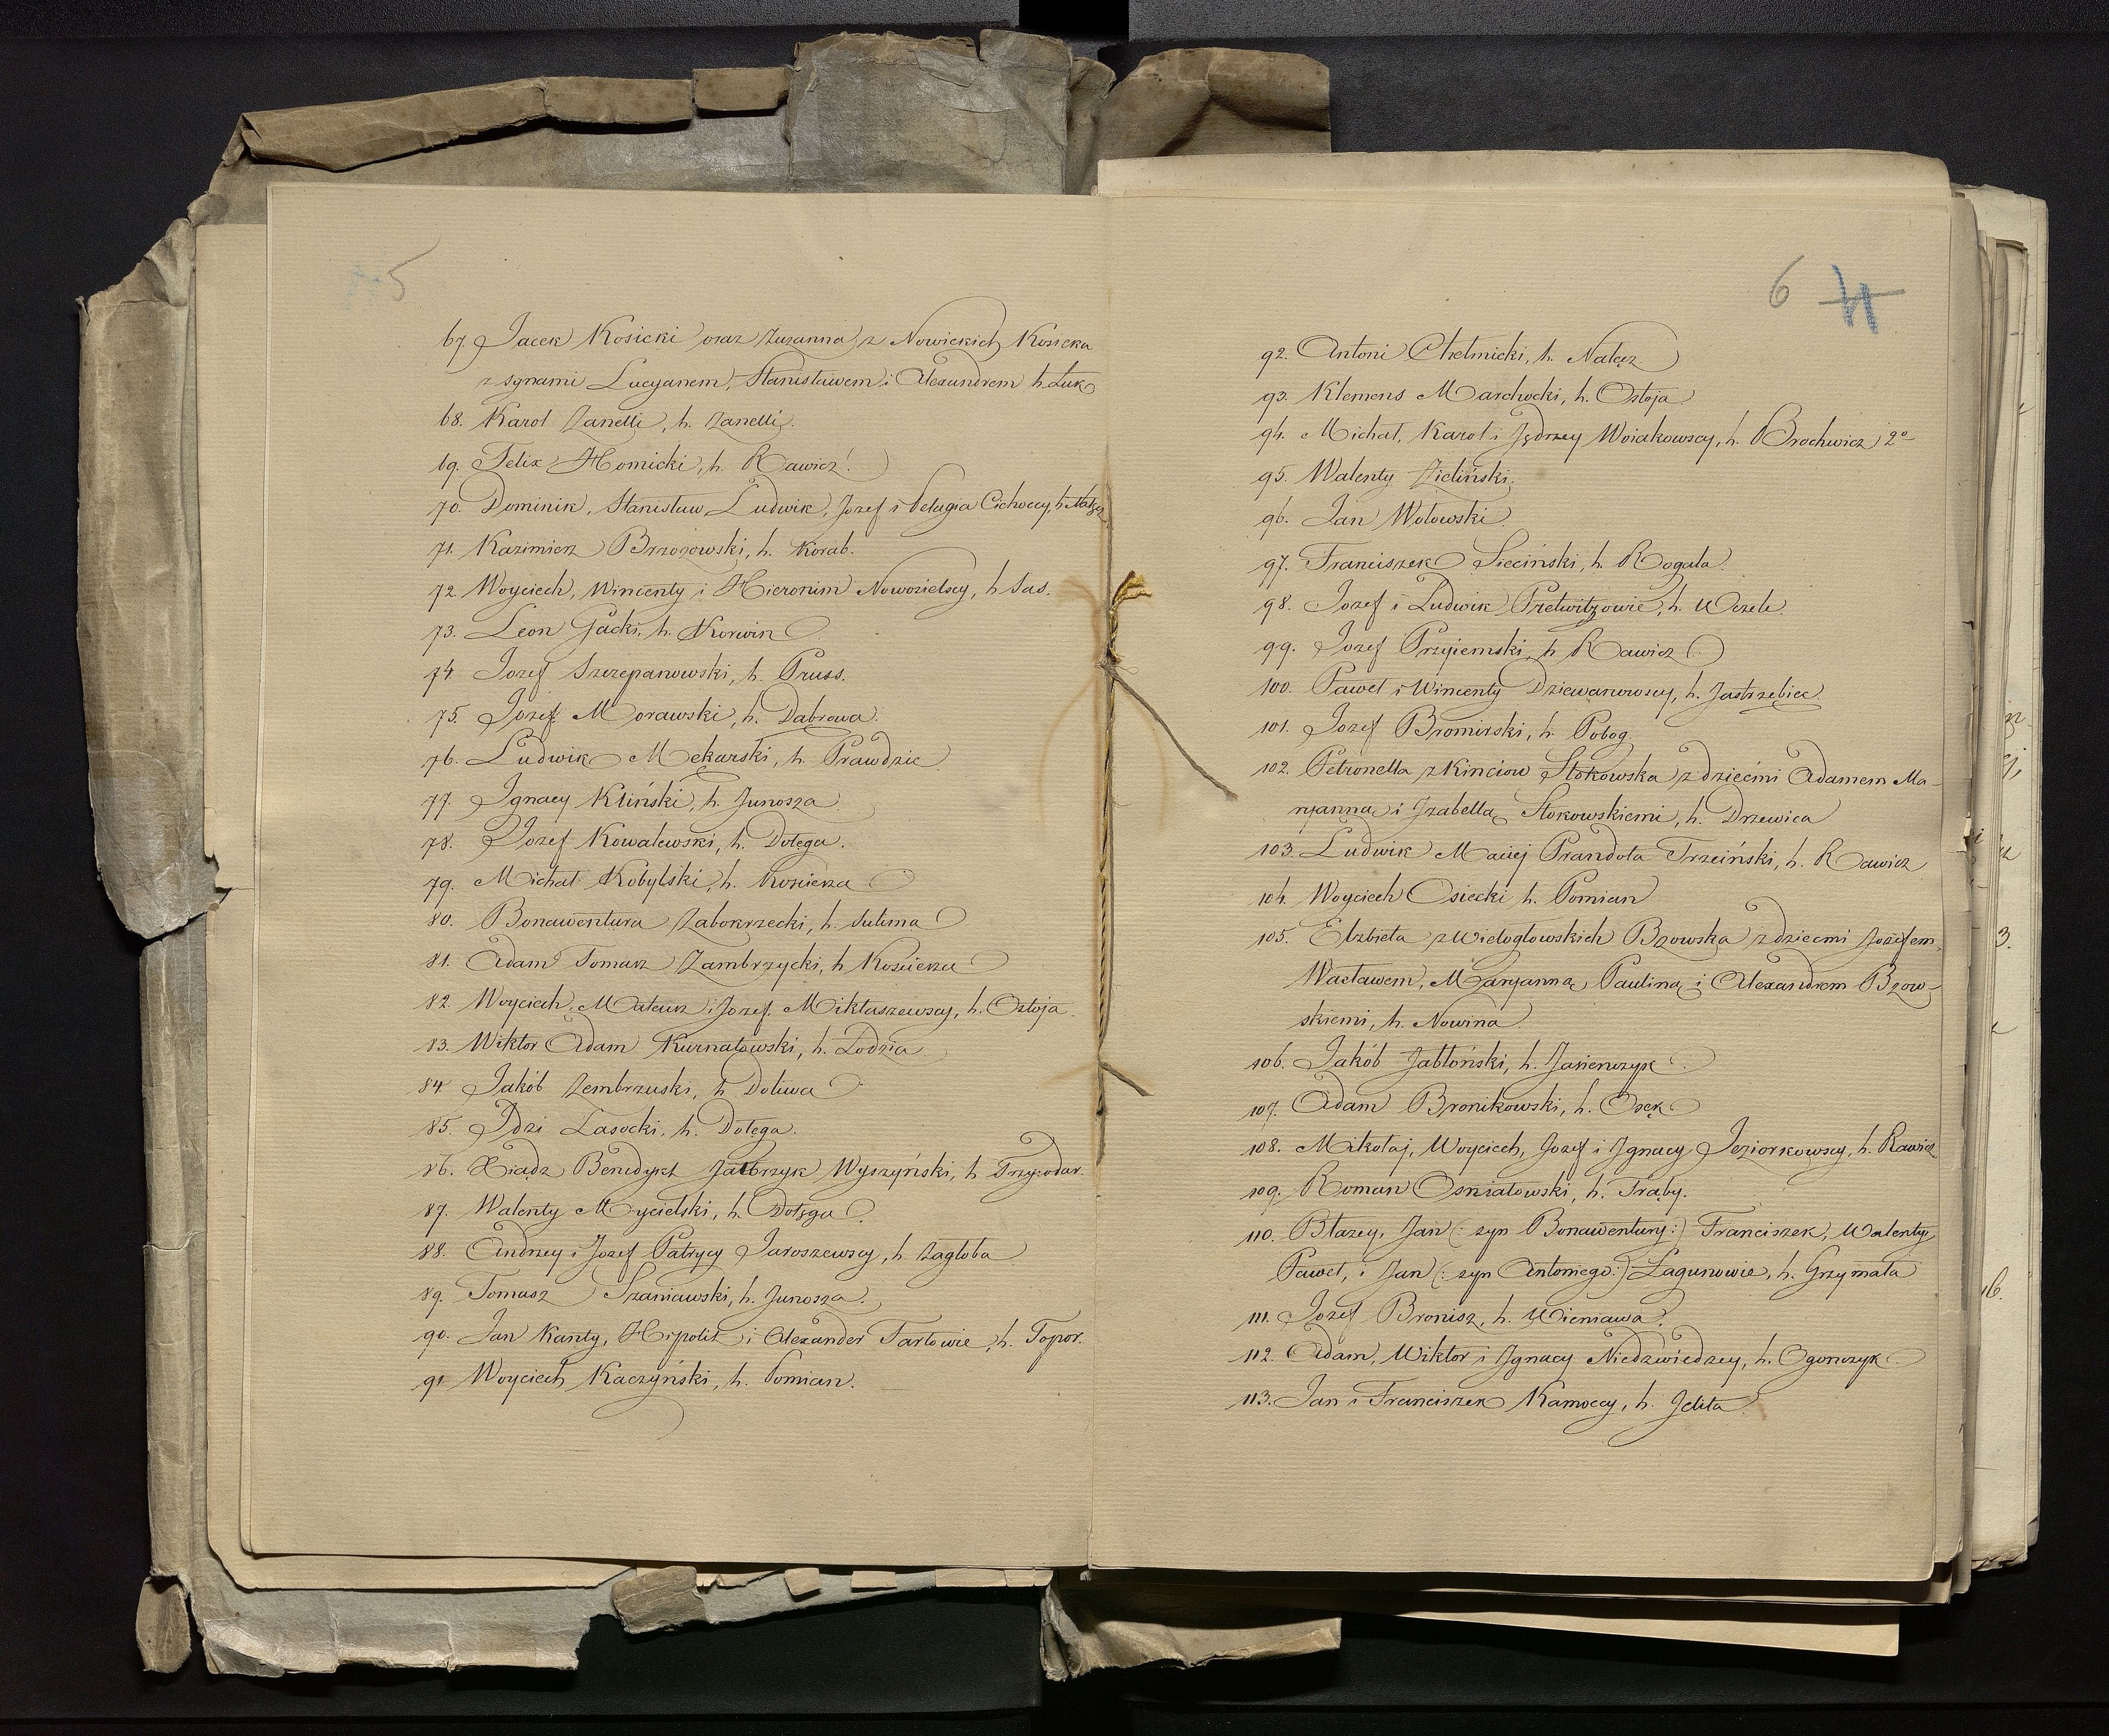 5
67. Jacek Kosicki oraz Zuzanna z Nowickich Kosicka
z synami Lucyanem, Stanisławem i Alexandrem h. Łuk
68. Karol Zanelli, h. Zanelli.
69. Felix Homicki, h. Rawicz.
70. Dominik, Stanisław Ludwik, Jozef i Pelagia Cichoccy, h. Nałęcz
71. Kazimierz Brzozowski, h. Korab.
72. Woyciech, Wincenty i Hieronim Nowosielscy, h Sas.
73. Leon Gacki, h. Korwin
74. Jozef Szczepanowski, h. Pruss.
75. Jozef Morawski, h. Dabrowa.
76. Ludwik Mekarski, h. Prawdzic
77. Ignacy Kliński, h. Junosza
78. Jozef Kowalewski, h. Dołęga.
79. Michał Kobylski, h. Kościesza
80. Bonawentura Zabokrzecki, h. Sulima
81. Adam Tomasz Zambrzycki, h Kościesza
82. Woyciech, Mateusz i Jozef Mikłaszewscy, h. Ostoja.
83. Wiktor Adam Kurnatowski, h. Lodzia
84 Jakób Zembrzuski, h Doliwa
85. Idzi Lasocki, h. Dołęga.
86. Xiądz Benedykt Jałbrzyk Wyszyński, h Trzywdar.
87. Walenty Mycielski, h. Dołęga.
88. Andrzey i Jozef Patrycy Jaroszewscy, h. Zagłoba
89. Tomasz Szaniawski, h. Junosza.
90. Jan Kanty, Hipolit i Alexander Tarłowie, h. Topor.
91 Woyciech Kaczyński, h. Pomian.
6 4
92. Antoni Chełmicki, h. Nałęz
93. Klemens Marchocki, h. Ostoja
94. Michał, Karol i Jędrzey Woiakowscy, h. Brochwicz 2o
95. Walenty Zieliński.
96. Jan Wołowski
97. Franciszek Sieciński, h. Rogala.
98. Jozef i Ludwik Pretwitzowie, h. Wczele.
99. Jozef Przyiemski, h Rawicz
100. Paweł i Wincenty Dziewanowscy, h. Jastrzębiec
101. Jozef Bromirski, h. Pobog.
102. Petronella z Kinciow Stokowska z dziećmi Adamem Ma-
ryanną i Izabellą Stokowskiemi, h. Drzewica
103. Ludwik Maciej Prandota Trzciński, h. Rawicz
104. Woyciech Osiecki h. Pomian
105. Elzbieta z Wielogłowskich Bzowska z dziecmi Jozefem,
Wacławem, Maryanną, Pauliną i Alexandrem Bzow-
skiemi, h. Nowina
106. Jakób Jabłoński, h. Jasienczyk
107. Adam Bronikowski, h. Osęk
108. Mikołaj, Woyciech, Jozef i Ignacy Jeziorkowscy, h. Rawicz
109. Roman Osniałowski, h. Trąby.
110. Błazey, Jan (: syn Bonawentury:) Franciszek, Walenty,
Paweł, i Jan (: syn Antoniego:) Łagunowie, h. Grzymała
111. Jozef Bronisz, h. Wieniawa.
112. Adam, Wiktor i Ignacy Niedzwiedzcy, h. Ogonczyk
113. Jan i Franciszek Kamoccy, h. Jelita